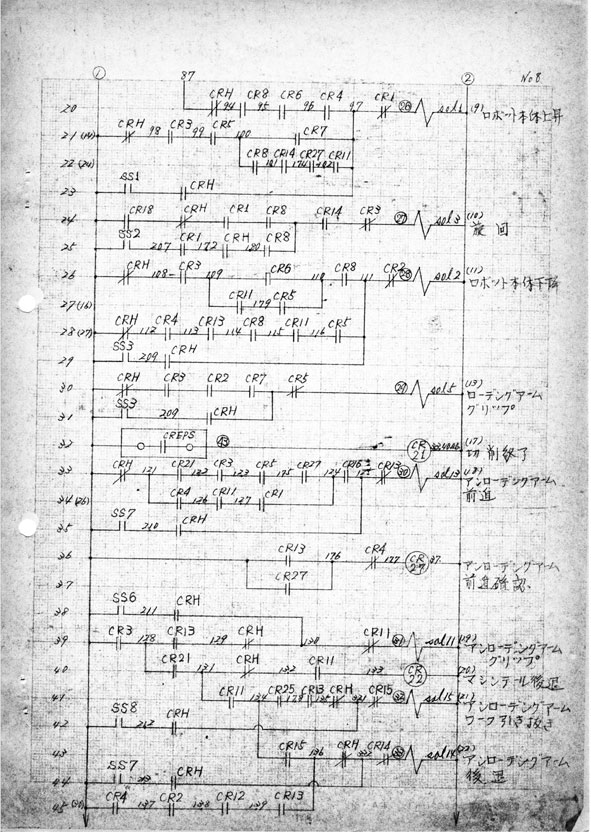 ① 87 ② No 8
CRH CR8 CR6 CR4 CR1
20 94 95 96 97 sol1 (9) ロボット本体上昇
CRH CR3 CR5 CR7
21 (14) 98 99 100
CR8 CR14 CR27 CR11
22 (24) 101 174 102
SS1 CRH
23
CR18 CRH CR1 CR8 CR14 CR3
24 ㉗ sol3 (10) 旋回
SS2 CR1 CRH CR8
25 207 172 180
CRH CR3 CR6 CR8 CR2
26 108 109 110 111 sol2 (11) ロボット本体下降
CR11 CR5
27 (16) 179
CRH CR4 CR13 CR8 CR11 CR5
28 (27) 112 113 114 115 116
SS3 CRH
29 209
CRH CR3 CR2 CR7 CR5
30 ㉙ sol5 (13) ローデングアーム
グリップ
SS3 CRH
31 209
CREPS ㊸ CR
32 21 (17) 切削終了
CRH CR21 CR3 CR5 CR27 CR16 CR13
33 121 122 123 124 ㉚ sol13 アンローデングアーム
前進
CR4 CR11 CR1
34 (26) 126 127
SS7 CRH
35 210
CR13 CR4 CR
36 176 177 27 37 アンローデングアーム
前進確認
CR27
37
SS6 CRH
38 211
CR3 CR13 CRH CR11
39 128 129 130 ㉛ sol11 (19) アンローデングアーム
グリップ
CR21 CRH CR11 CR
40 131 132 133 22 (20) マシンテール後退
CR11 CR25 CR13 CRH CR15
41 134 ㉜ sol15 (21) アンローデングアーム
ワーク引き抜き
SS8 CRH
42 212
CR15 CRH CR14
43 136 ㉝ sol14 (22) アンローデングアーム
後退
SS7 CRH
44
CR4 CR2 CR12 CR13
45 137 138 139